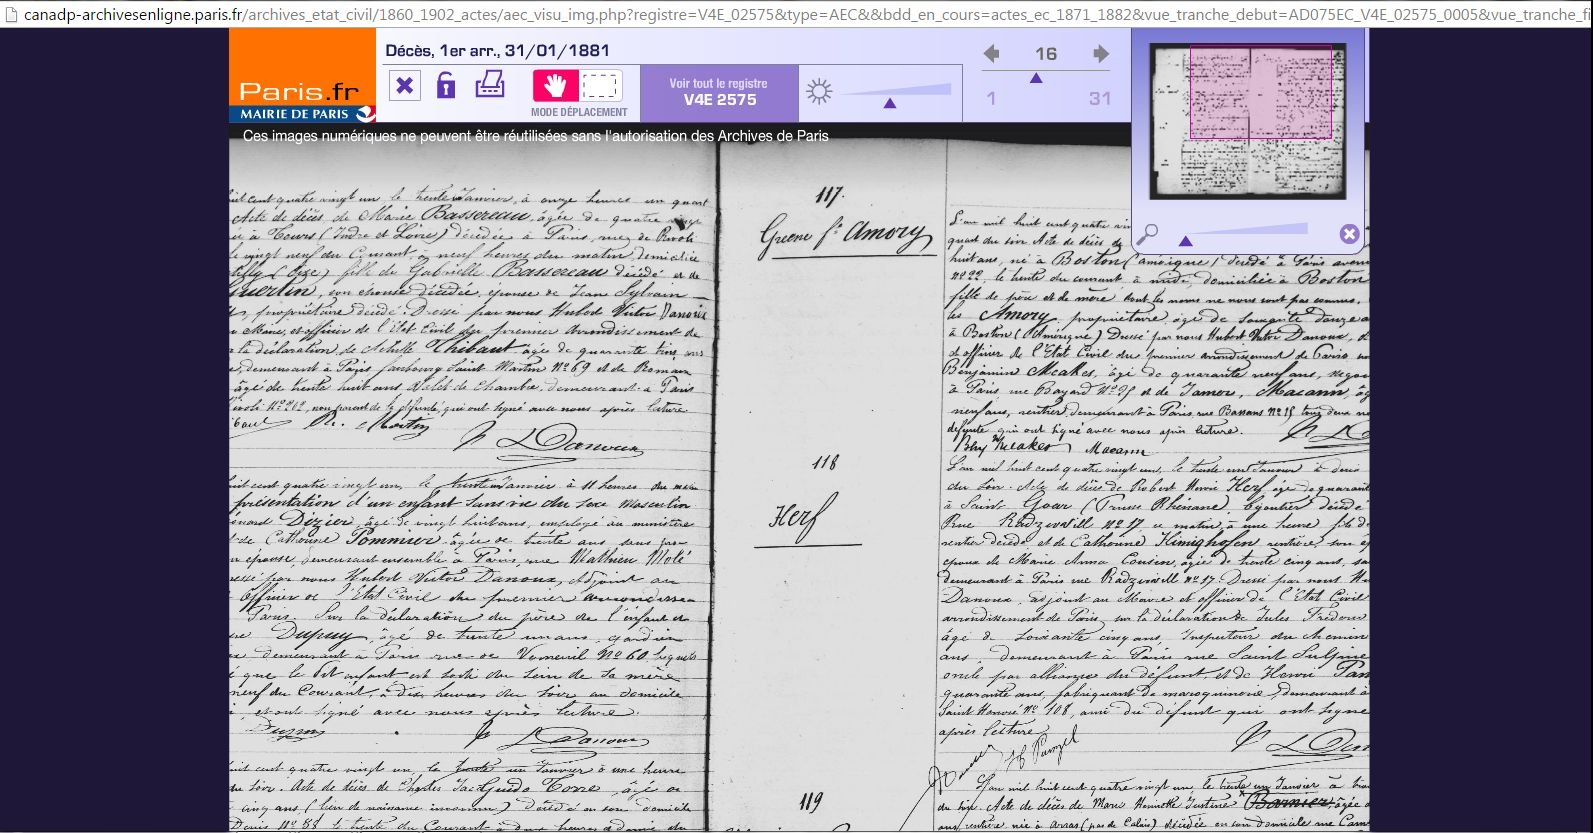 canadp-archivesenligne.paris.fr/archives_etat_civil/1860_1902_actes/aec_visu_img.php?registre=V4E_02575&type=AEC&&bdd_en_cours=actes_ec_1871_1882&vue_tranche_debut=AD075EC_V4E_02575_0005&vue_tranche_fi
Paris.fr
MAIRIE DE PARIS
Décès, 1er arr., 31/01/1881
MODE DÉPLACEMENT
Voir tout le registre
V4E 2575
16
1 31
Ces images numériques ne peuvent être réutilisées sans l'autorisation des Archives de Paris
uit cent quatre vingt un le trente Janvier, à onze heures un quart
Acte de décès de Marie Bassereau, âgée de quatre vingt
à Tours (Indre et Loire) décédée à Paris, rue de Rivoli
le vingt neuf du Courant, à neuf heures du matin, domiciliée
(Oise) fille de Gabrielle Bassereau décédé et de
son épouse décédée, épouse de Jean Sylvain
propriétaire décédé. Dressé par nous Hubert Victor Danoux
Maire, et officier de l'État Civil du premier arrondissement de
la déclaration de Achille Thibaut, âgé de quarante trois ans
demeurant à Paris faubourg Saint Martin Nº 69 et de Romain
âgé de trente huit ans Valet de chambre, demeurant à Paris
Rivoli Nº 202, non parent de la défunte, qui ont signé avec nous après lecture
Danoux
uit cent quatre vingt un, le trente Janvier à 11 heures du matin
présentation d'un enfant sans vie du sexe masculin
Dizier, âgé de vingt huit ans, employé au ministère
de Catherine Pommier, âgée de trente ans sans pro
épouse, demeurant ensemble à Paris rue Mathieu Molé
par nous Hubert Victor Danoux, Adjoint au
Officier de l'État Civil du premier arrondisse
Paris. Sur la déclaration du père de l'enfant et
Dupuy, âgé de trente un ans, gardien
demeurant à Paris rue de Verneuil Nº 60 lesquels
que le dit enfant est sorti du sein de sa mère
neuf du Courant, à dix heures du soir au domicile
et ont signé avec nous après lecture.
Danoux
uit cent quatre vingt un le trente un Janvier à une heure
du soir. Acte de décès de Charles Jacques
cinq ans (lieu de naissance inconnu) décédé en son domicile
le trente du Courant à deux heures
117.
Greene fe Amory
118
Herf
119
L'an mil huit cent quatre vi
quart du soir Acte de décès de
huit ans, né à Boston (amérique) décédé à Paris avenue
Nº 22, le trente du courant à midi, domiciliée à Boston
fille de père et de mère dont les noms ne nous sont pas connus,
les Amory, propriétaire âgé de soixante douze a
à Boston (Amérique) Dressé par nous Hubert Victor Danoux,
et officier de l'État Civil du premier arrondissement de Paris,
Benjamin Meakes, âgé de quarante neuf ans, négoc
à Paris rue Bayard et de James Macann, âg
neuf ans, rentier, demeurant à Paris, rue Bassano Nº 15 tous deux no
défunte qui ont signé avec nous après lecture.
Benj Meakes Macann
L'an mil huit cent quatre vingt un, le trente un Janvier à deux
du soir. Acte de décès de Robert Henri Herf âgé de quarant
à Saint Goar (Prusse Rhénane) bijoutier décédé
Rue Radziwill Nº 17 ce matin à une heure, fils de
rentier décédé et de Catherine rentière, son ép
époux de Marie Anna Cousin, âgée de trente cinq ans, sa
demeurant à Paris rue Radziwill Nº 17. Dressé par nous Hu
Danoux, adjoint au Maire et officier de l'État Civil
arrondissement de Paris, sur la déclaration de Jules
âgé de soixante cinq ans, Inspecteur du Chemin
ans, demeurant à Paris rue Saint Sulpice
oncle par alliance du défunt et de Henri Pan
quarante ans, fabriquant de maroquinerie, demeurant à
Saint Honoré Nº 108, ami du défunt qui ont signé
après lecture
L'an mil huit cent quatre vingt un, le trente un Janvier à
du soir. Acte de décès de Marie Henriette Justine Barnier, âgée
ans, rentière née à Arras (pas de Calais) décédée en son domicile rue Cam